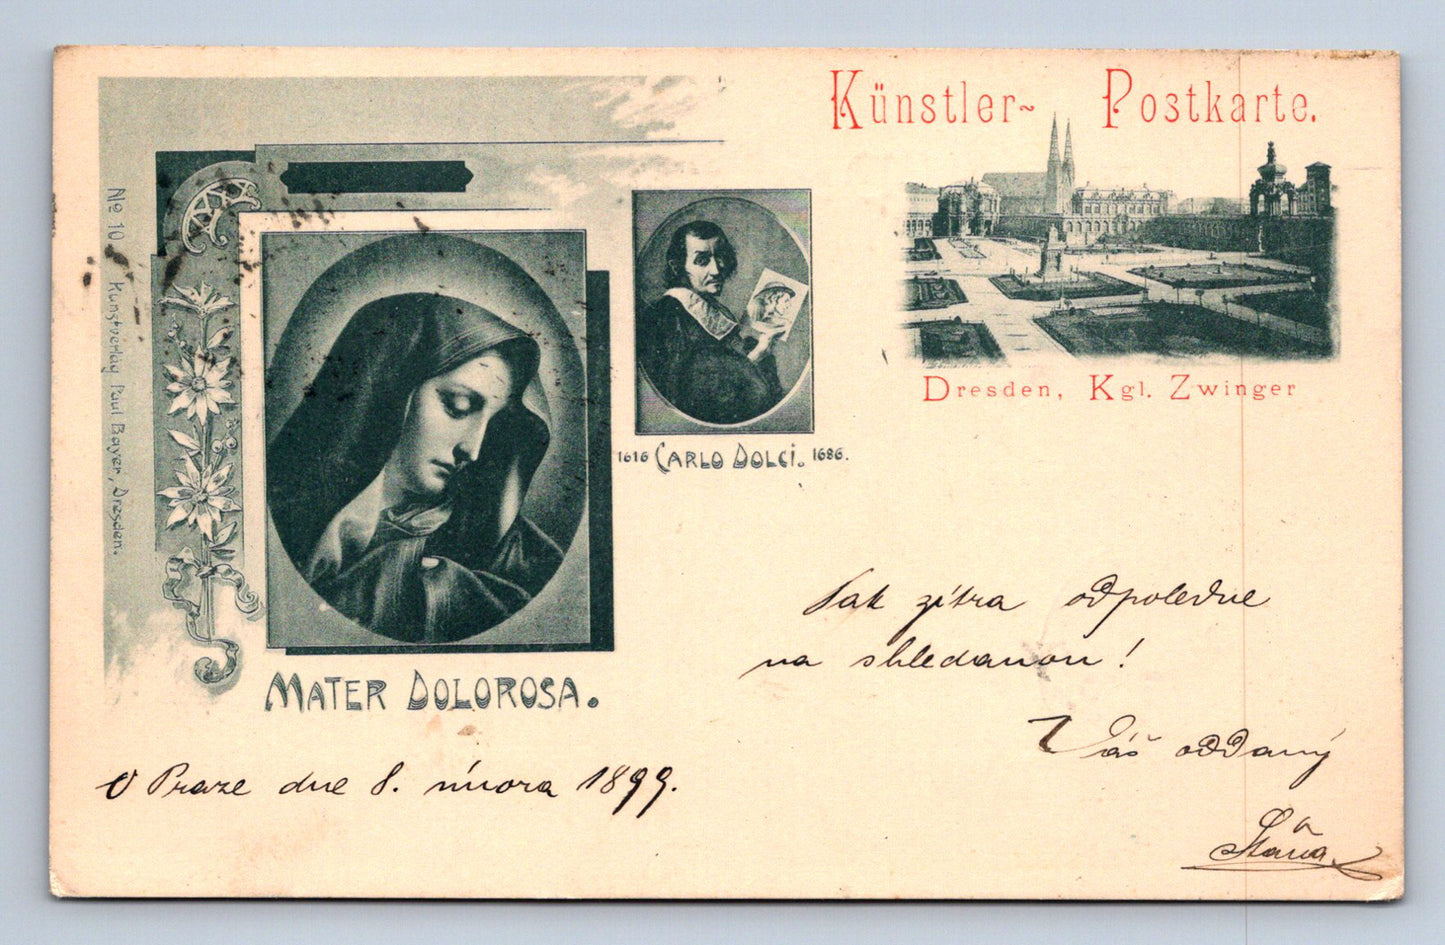 Künstler~ Postkarte.
Dresden, Kgl. Zwinger
No 10 Kunstverlag Paul Bayer, Dresden.
1616 CARLO DOLCI. 1686.
MATER DOLOROSA.
Tak zítra odpoledne
na shledanou!
Váš oddaný
Stáňa
V Praze dne 8. února 1899.